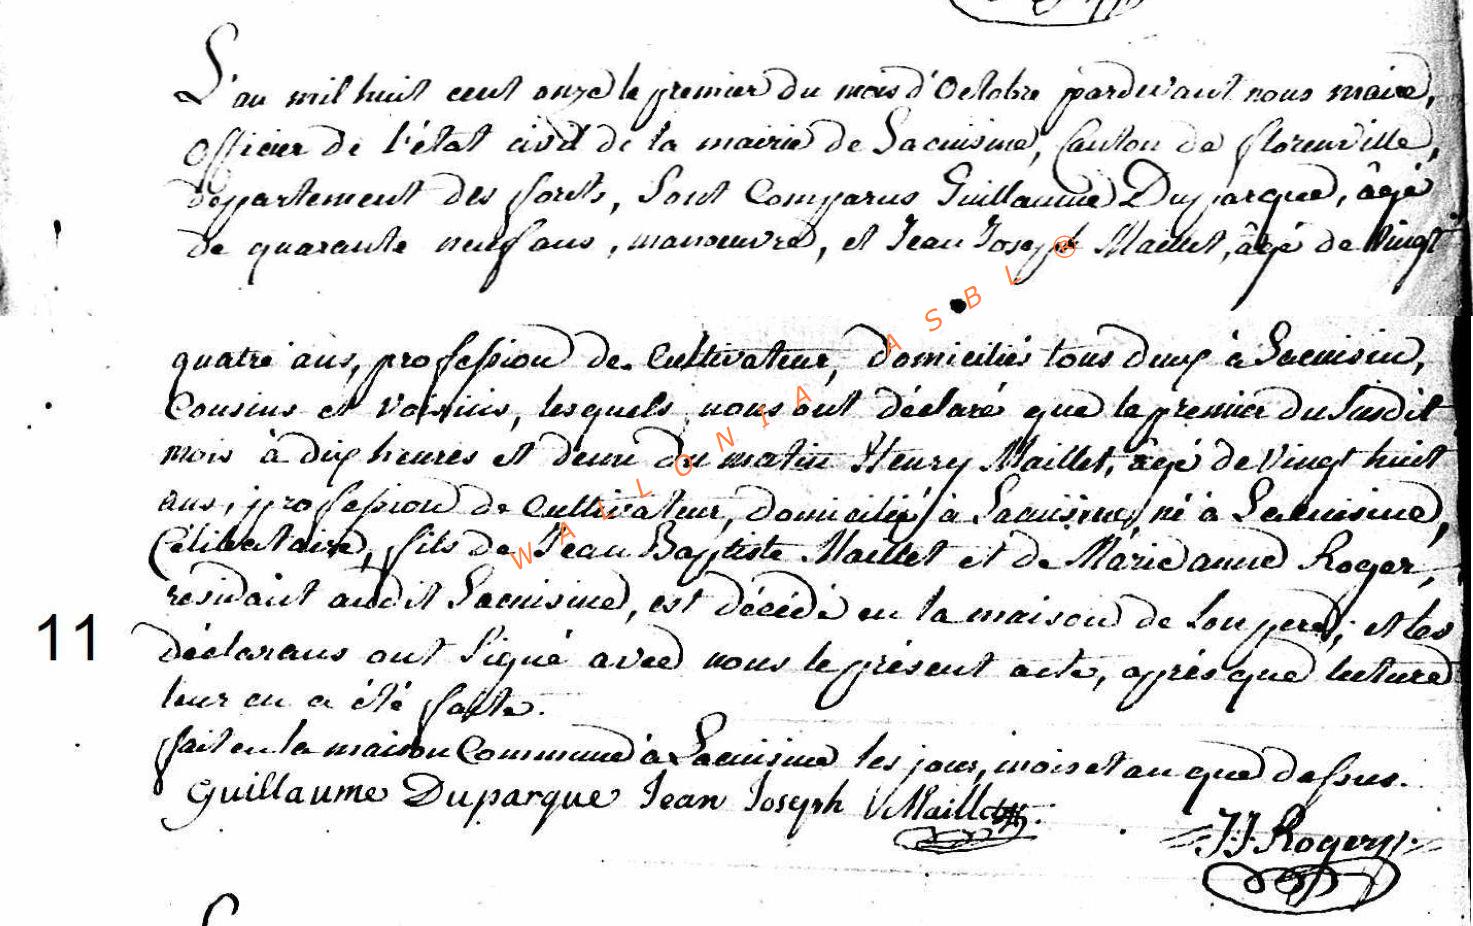 L'an mil huit cent onze le premier du mois d'Octobre pardevant nous maire,
Officier de l'état civil de la mairie de Lacuisine, Canton de florenville,
département des forêts, Sont Comparus Guillaume Duparque, âgé
de quarante neuf ans, manoeuvre, et Jean Joseph Maillet, âgé de Vingt
quatre ans, profession de Cultivateur, domiciliés tous deux à Lacuisine,
Cousins et Voisins, lesquels nous ont déclaré que le premier du Susdit
mois à dix heures et demi du matin Henry Maillet, âgé de Vingt huit
ans, profession de Cultivateur, domicilié à Lacuisine, né à Lacuisine,
Célibataire, fils de Jean Baptiste Maillet et de Marie anne Roger,
residant audit Lacuisine, est décédé en la maison de Son pere; et les
11
déclarans ont Signé avec nous le présent acte, après que lecture
leur en a été faite.
fait en la maison Commune à Lacuisine les jour, mois et an que dessus.
Guillaume Duparque Jean Joseph Maillet
JJ Roger
WALLONIA ASBL ®